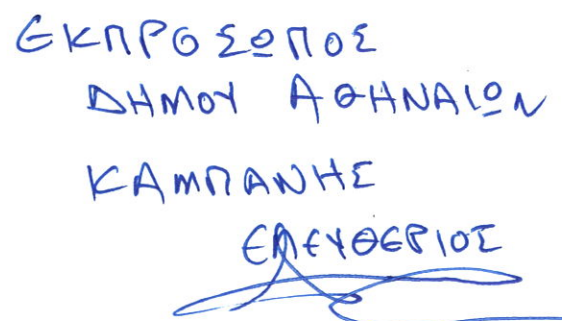 ΕΚΠΡΟΣΩΠΟΣ
ΔΗΜΟΥ ΑΘΗΝΑΙΩΝ
ΚΑΜΠΑΝΗΣ
ΕΛΕΥΘΕΡΙΟΣ